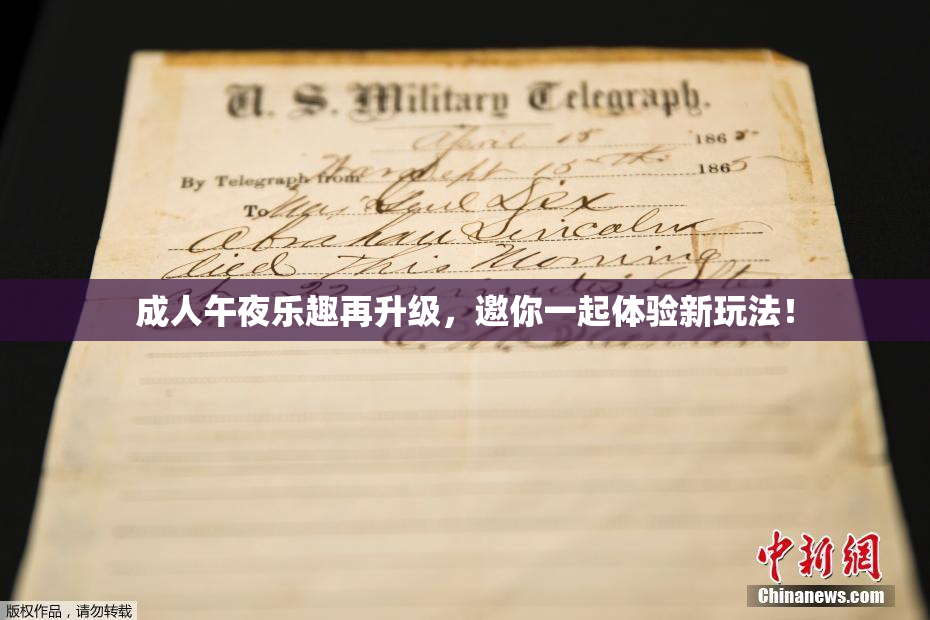 U. S. Military Telegraph.
April 15 1865
By Telegraph from War Dept 15th 1865
To Maj Genl Dix
Abraham Lincoln
died This Morning
at 22 minutes after
成人午夜乐趣再升级，邀你一起体验新玩法！
E. M. Stanton
中新网
Chinanews.com
版权作品，请勿转载